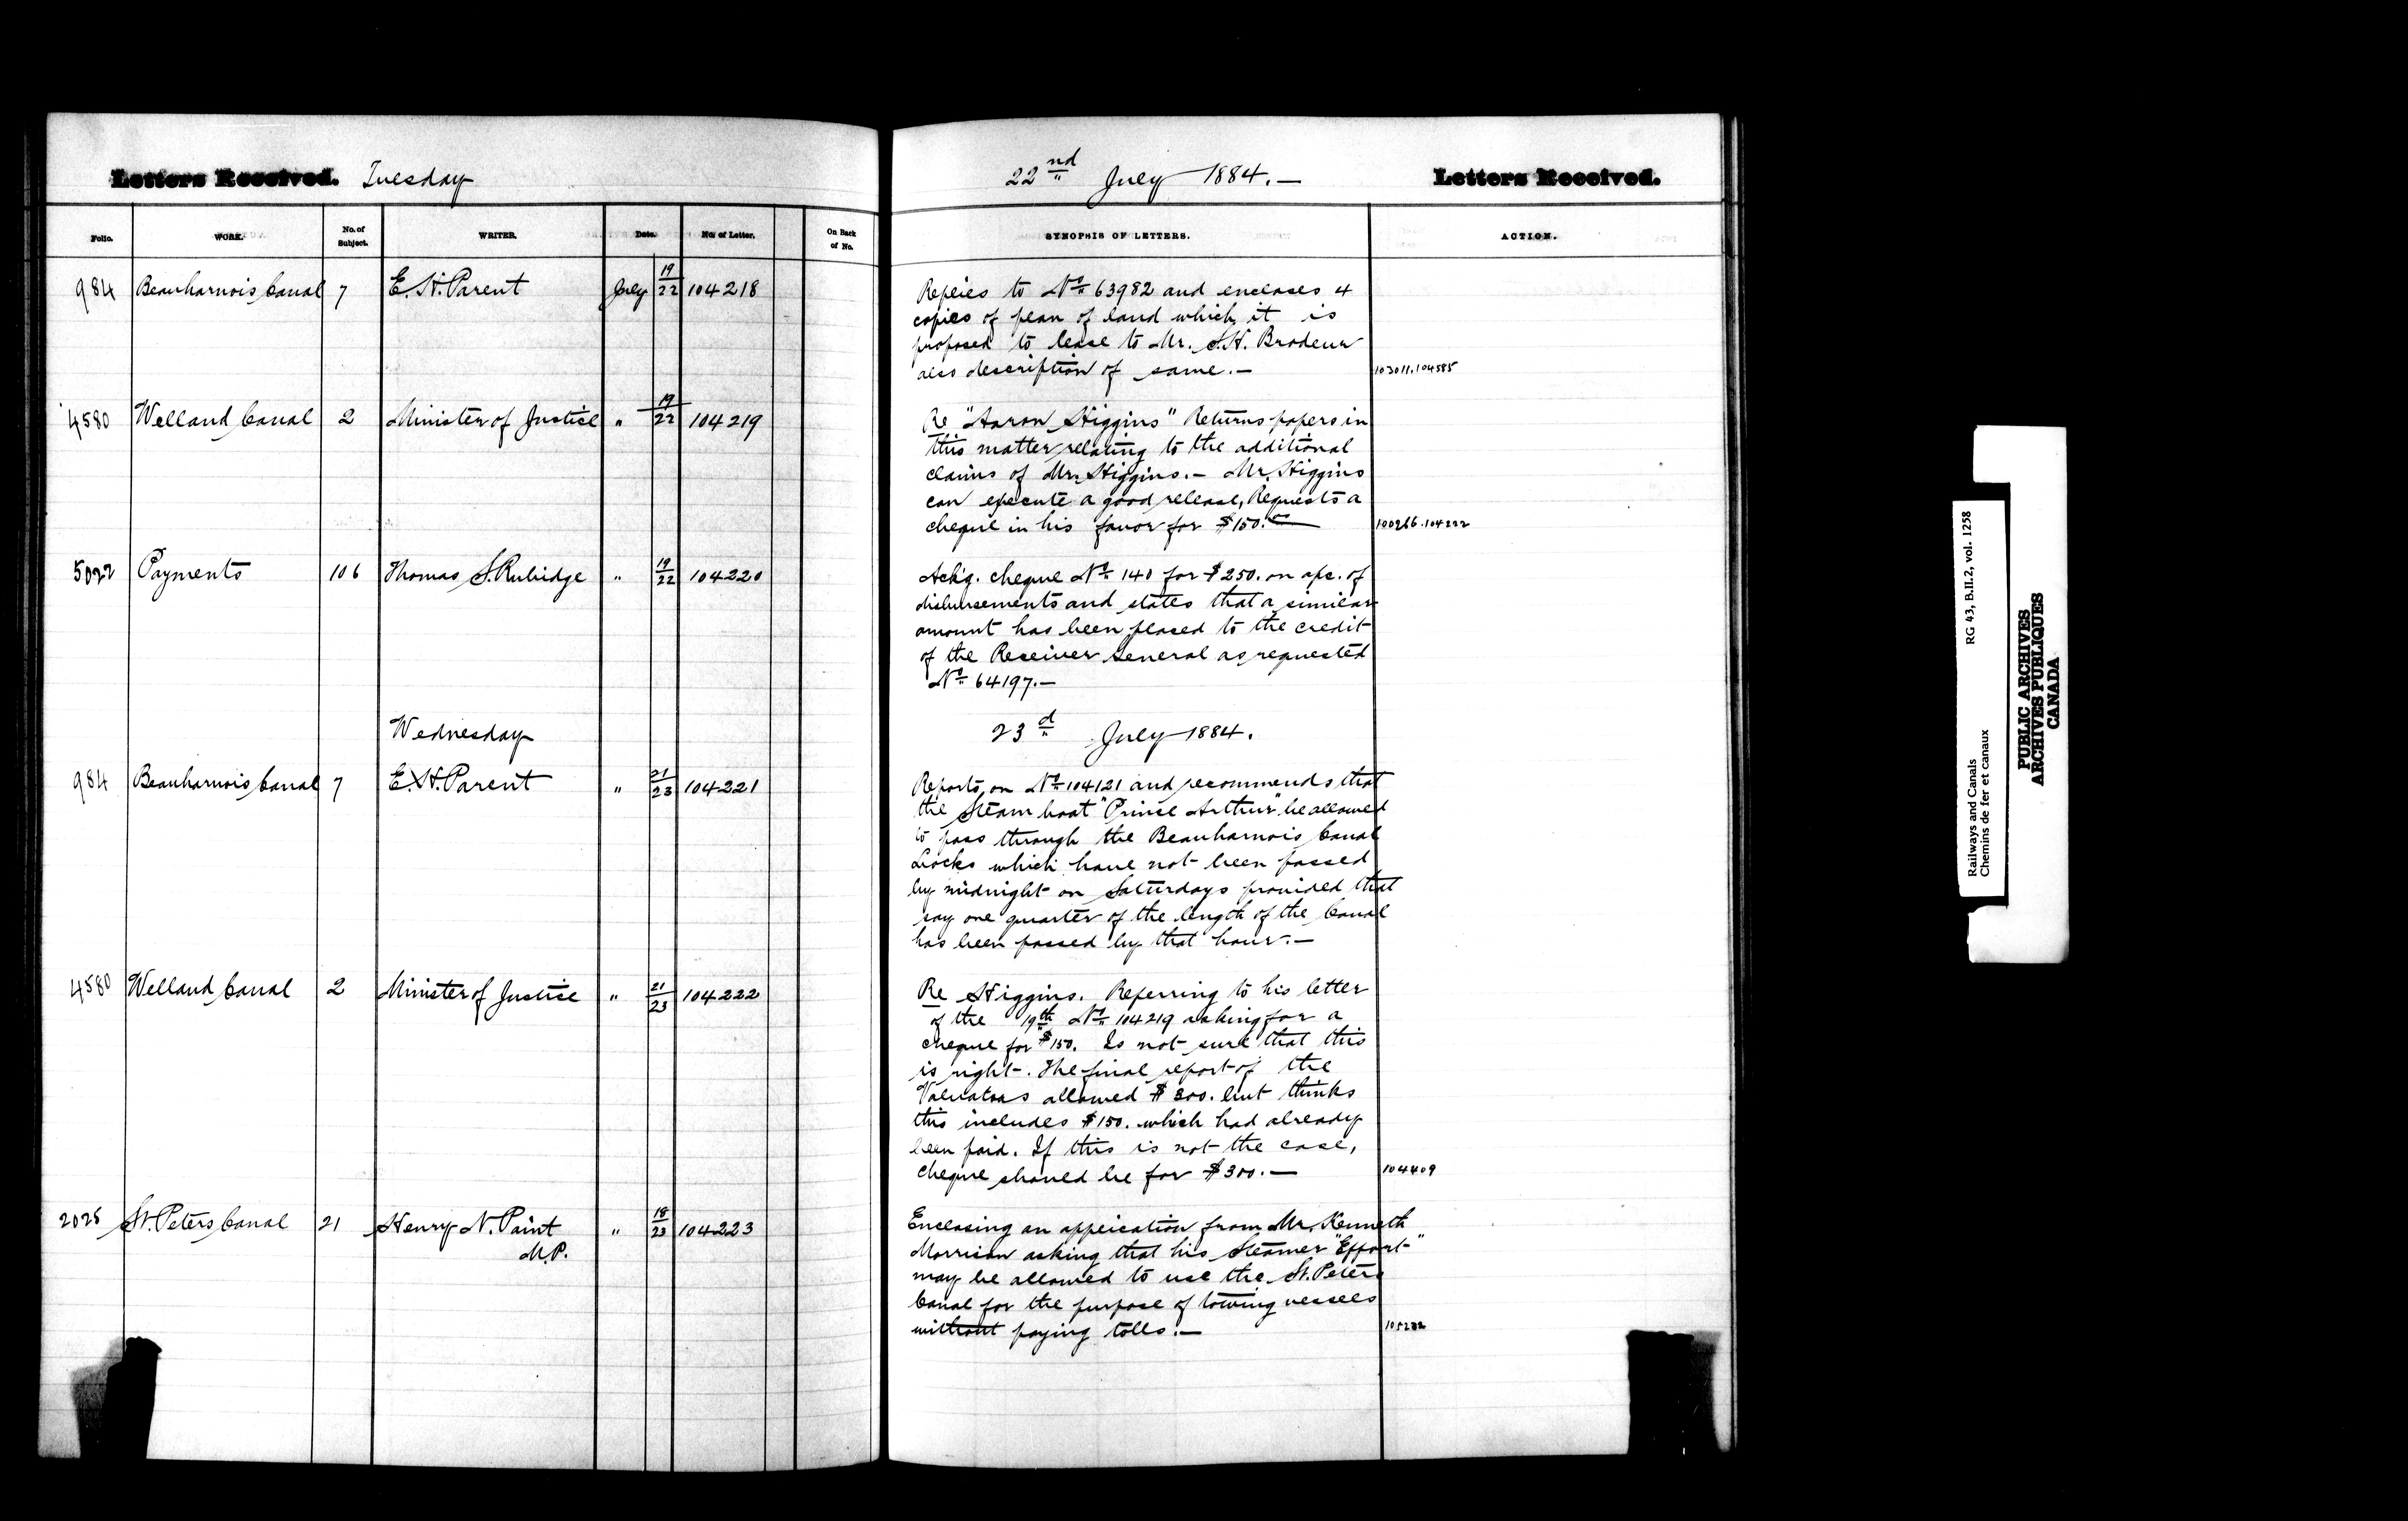 Letters Received. Tuesday
22nd July 1884.—
Letters Received.
Folio. WORK. No. of Subject. WRITER. Date. No. of Letter. On Back of No. SYNOPSIS OF LETTERS. ACTION.
984 Beauharnois Canal 7 E. H. Parent July 19/22 104218
Replies to No 63982 and encloses 4
copies of plan of land which it is
proposed to lease to Mr. S.H. Brodeur
also description of same.— 103011.104585
4580 Welland Canal 2 Minister of Justice " 19/22 104219
Re "Aaron Higgins" Returns papers in
this matter relating to the additional
claims of Mr. Higgins.— Mr. Higgins
can execute a good release, Requests a
cheque in his favor for $150.00 100266.104222
5022 Payments 106 Thomas S. Rubidge " 19/22 104220
Ackg. cheque No 140 for $250. on a/c. of
disbursements and states that a similar
amount has been placed to the credit
of the Receiver General as requested
No 64197.—
Wednesday 23d July 1884.
984 Beauharnois Canal 7 E. H. Parent " 21/23 104221
Reports on No 104121 and recommends that
the Steam boat "Prince Arthur" be allowed
to pass through the Beauharnois Canal
Locks which have not been passed
by midnight on Saturdays provided that
say one quarter of the length of the Canal
has been passed by that hour.—
4580 Welland Canal 2 Minister of Justice " 21/23 104222
Re Higgins. Referring to his letter
of the 19th No 104219 asking for a
cheque for $150. Is not sure that this
is right. The final report of the
Valuators allowed $300. but thinks
this includes $150. which had already
been paid. If this is not the case,
cheque should be for $300.— 104409
2025 St. Peters Canal 21 Henry N. Paint " 18/23 104223
M.P.
Enclosing an application from Mr. Kenneth
Morrison asking that his Steamer "Effort"
may be allowed to use the St. Peters
Canal for the purpose of towing vessels
without paying tolls.— 105232
Railways and Canals RG 43, B.II.2, vol. 1258
Chemins de fer et canaux
PUBLIC ARCHIVES
ARCHIVES PUBLIQUES
CANADA